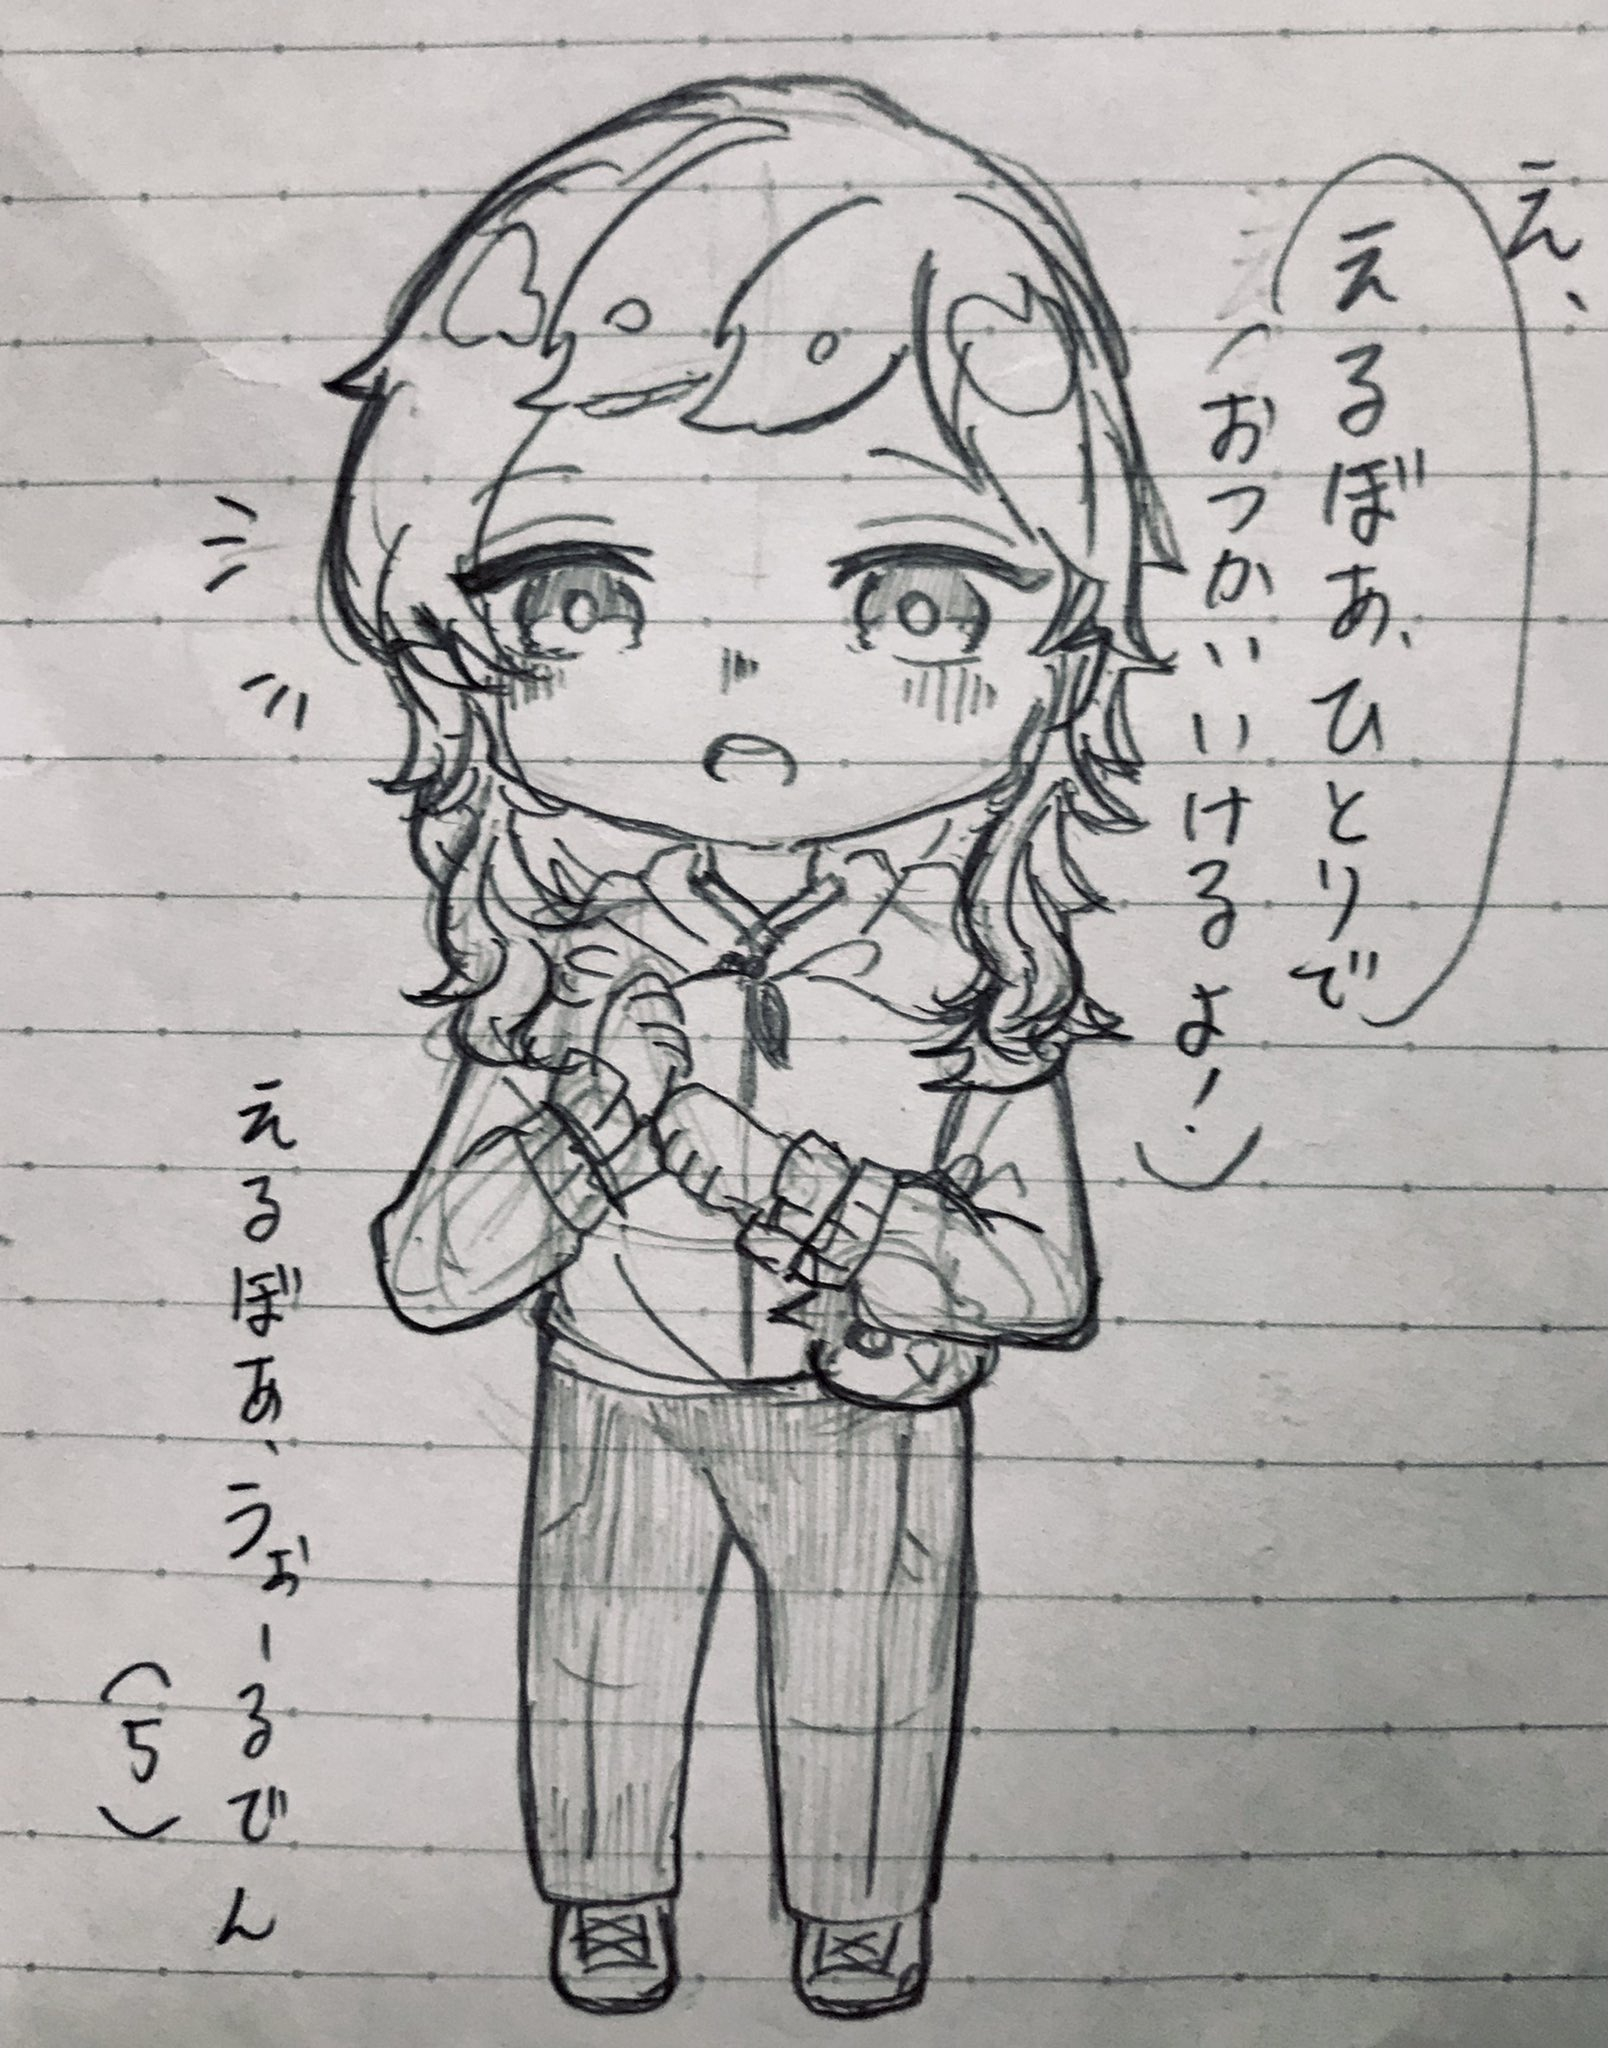 え、
えるぼあ、ひとりで
おつかいいけるよ!
えるぼあ、うぉーるでん
(5)